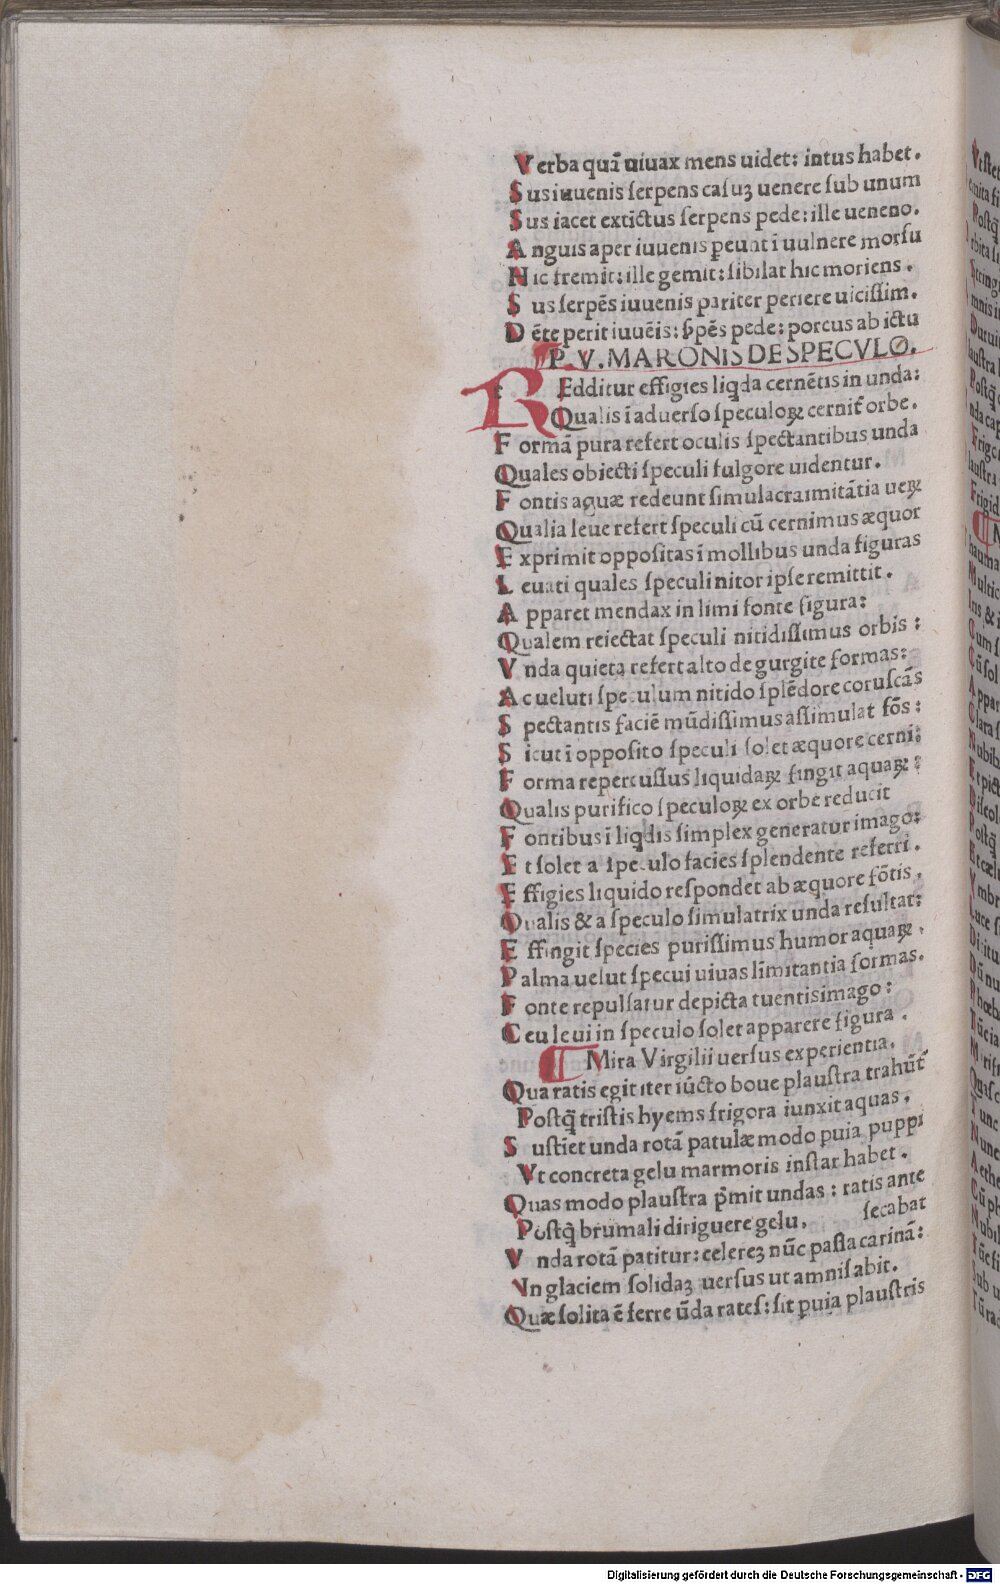 Verba quā uiuax mens uidet: intus habet.
Sus iuuenis serpens casuꝫ uenere sub unum
Sus iacet extictus serpens pede: ille ueneno.
Anguis aper iuuenis peunt ī uulnere morsu
Hic fremit: ille gemit: sibilat hic moriens.
Sus serpēs iuuenis pariter periere uicissim.
Dēte perit iuuēis: s̄pēs pede: porcus ab ictu
P. V. MARONIS DE SPECVLO.
REdditur effigies liqda cernētis in unda:
Qualis ī aduerso speculoꝝ cernit̄ orbe.
Formā pura refert oculis spectantibus unda
Quales obiecti speculi fulgore uidentur.
Fontis aquæ redeunt simulacra imitātia ueꝝ
Qualia leue refert speculi cū cernimus æquor
Exprimit oppositas ī mollibus unda figuras
Leuati quales speculi nitor ipse remittit.
Apparet mendax in limi fonte figura:
Qualem reiectat speculi nitidissimus orbis:
Vnda quieta refert alto de gurgite formas:
Ac ueluti speculum nitido splēdore coruscās
Spectantis faciē mūdissimus assimulat fōs:
Sicut ī opposito speculi solet æquore cerni:
Forma repercussus liquidaꝝ fingit aquaꝝ:
Qualis purifico speculoꝝ ex orbe reducit
Fontibus ī liqdis simplex generatur imago:
Et solet a speculo facies splendente referri.
Effigies liquido respondet ab æquore fōtis,
Qualis & a speculo simulatrix unda resultat:
Effingit species purissimus humor aquaꝝ.
Palma uelut specui uiuas līmitantia formas.
Fonte repulsatur depicta tuentis imago:
Ceu leui in speculo solet apparere figura.
¶ Mira Virgilii uersus experientia.
Qua ratis egit iter iūcto boue plaustra trahūt
Postq̄ tristis hyems frigora iunxit aquas.
Sustīet unda rotā patulæ modo puia puppi
Vt concreta gelu marmoris instar habet.
Quas modo plaustra p̄mit undas: ratis ante
Postq̄ brumali diriguere gelu. secabat
Vnda rotā patitur: celereꝫ nūc passa carinā:
Vn glaciem solidaꝫ uersus ut amnis abit.
Quæ solita ē ferre ūda rates: sit puia plaustris
Digitalisierung gefördert durch die Deutsche Forschungsgemeinschaft - DFG